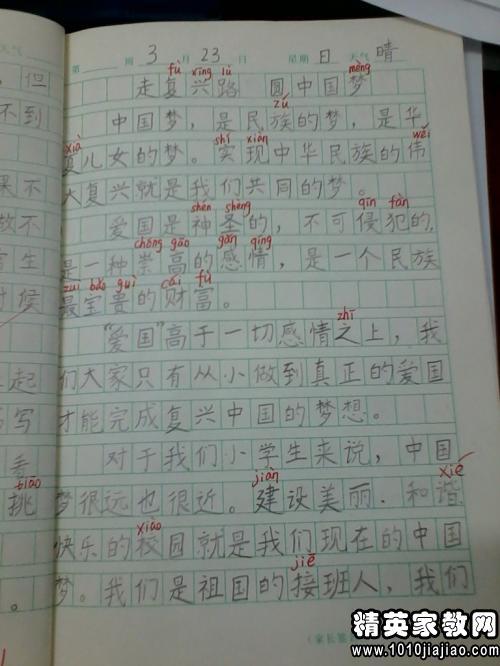 天气
第 周 3 月 23 日 星期 日 天气 晴
fù xīng lù mèng
走复兴路 圆中国梦
zú
中国梦，是民族的梦，是华
xià shí xiàn wěi
夏儿女的梦。实现中华民族的伟
大复兴就是我们共同的梦。
shén shèng qīn fàn
爱国是神圣的，不可侵犯的，
chóng gāo gǎn qíng
是一种崇高的感情，是一个民族
zuì bǎo guì cái fù
最宝贵的财富。
zhī
“爱国”高于一切感情之上，我
们大家只有从小做到真正的爱国
才能完成复兴中国的梦想。
对于我们小学生来说，中国
jiàn xié
梦很远也很近。建设美丽、和谐
xiào
快乐的校园就是我们现在的中国
jiē
梦。我们是祖国的接班人，我们
，但
不到
果不
放不
生
时候
起
写
看
tiāo
挑
。
(家长签
精英家教网
www.1010jiajiao.com